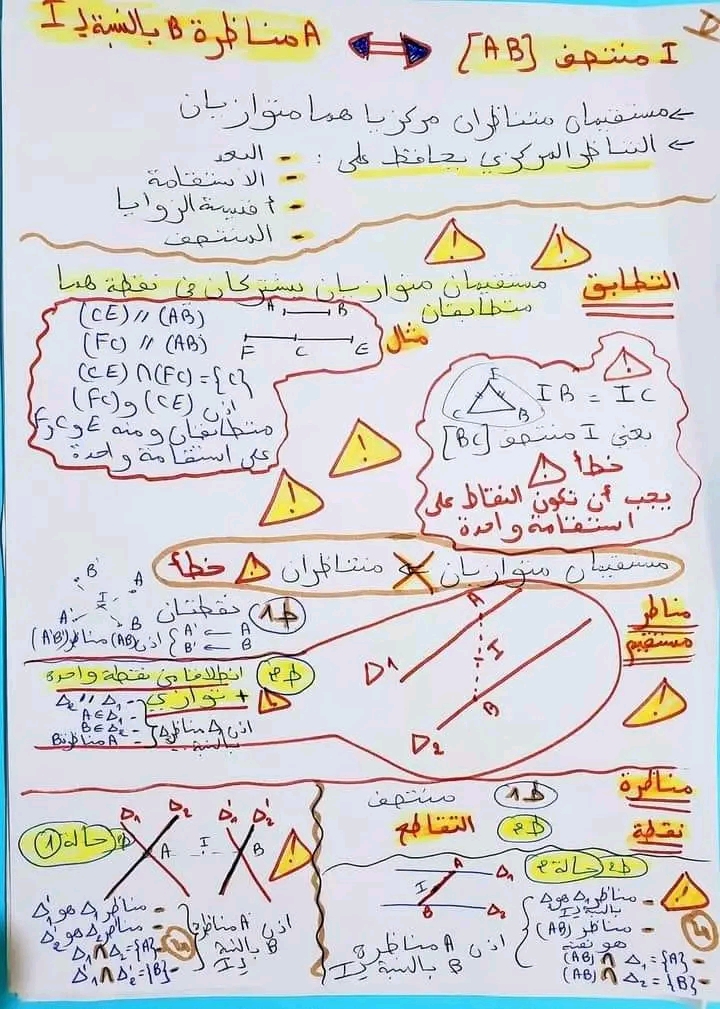 I منتصف [AB] ⟺ A مناظرة B بالنسبة لـ I
← مستقيمان متناظران مركزيا هما متوازيان
← التناظر المركزي يحافظ على :
- البعد
- الاستقامة
- أقيسة الزوايا
- المنتصف
! !
التطابق
مستقيمان متوازيان يشتركان في نقطة هما
متطابقان
مثال
A B
F C E
(CE) // (AB)
(FC) // (AB)
(CE) ∩ (FC) = {C}
اذن (CE) و (FC)
متطابقان ومنه E و C و F
على استقامة واحدة
!
I
C B
IB = IC
يعني I منتصف [BC]
خطأ !
يجب أن تكون النقاط على
استقامة واحدة
! !
مستقيمان متوازيان ⇐ متناظران ! خطأ
مناظر
مستقيم
!
ط1 نقطتان
B' A
I
A' B
A' ← A
B' ← B
اذن (AB) مناظر (A'B')
ط2 انطلاقا من نقطة واحدة
+ توازي
Δ2 // Δ1 -
A ∈ Δ1 -
B ∈ Δ2 -
A مناظرة B -
اذن Δ1 مناظر Δ2
بالنسبة لـ I
D1 A
I
B
D2
مناظرة
نقطة
ط1 منتصف
ط2 التقاطع
ط2 حالة 1
Δ1 Δ2 Δ'1 Δ'2
A I B
!
- مناظر Δ1 هو Δ'1
- مناظر Δ2 هو Δ'2
Δ1 ∩ Δ2 = {A} -
Δ'1 ∩ Δ'2 = {B} -
اذن A مناظرة
B بالنسبة
لـ I
ط2 حالة 2
A Δ1
I
B Δ2
!
- مناظر Δ1 هو Δ2
بالنسبة لـ I
- مناظر (AB)
هو نفسه
(AB) ∩ Δ1 = {A} -
(AB) ∩ Δ2 = {B} -
اذن A مناظرة
B بالنسبة لـ I